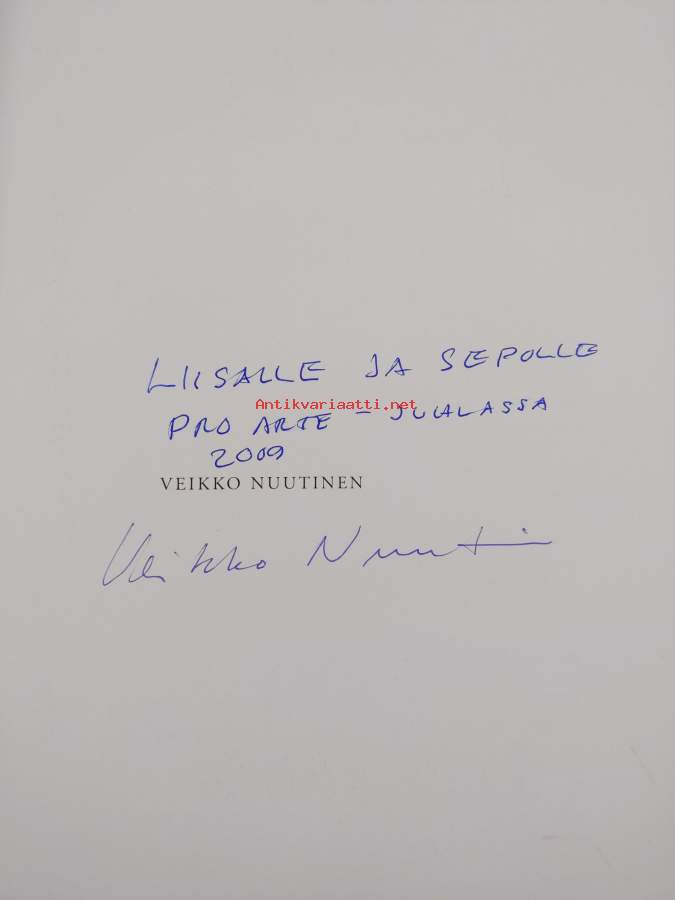 LIISALLE JA SEPOLLE
Antikvariaatti.net
PRO ARTE - JUHLASSA
2009
VEIKKO NUUTINEN
Veikko Nuutinen